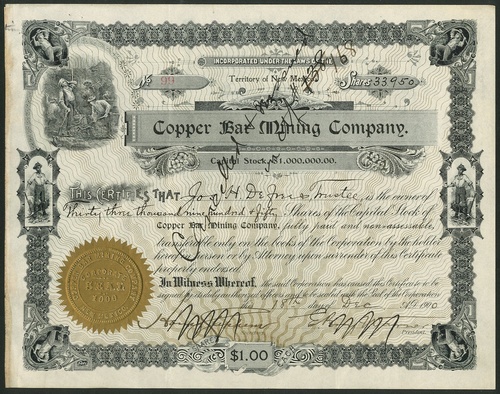 INCORPORATED UNDER THE LAWS OF THE
Territory of New Mexico
No 99
Shares 33950
Copper Bar Mining Company.
Capital Stock $1,000,000.00.
THIS CERTIFIES THAT Jos. H. Trustee is the owner of
Thirty three thousand nine hundred & fifty Shares of the Capital Stock of
Copper Bar Mining Company, fully paid and non-assessable,
transferable only on the books of the Corporation by the holder
hereof in person or by Attorney upon surrender of this Certificate
properly endorsed.
In Witness Whereof, the said Corporation has caused this Certificate to be
signed by its duly authorized officers and to be sealed with the Seal of the Corporation
18th day of Dec A.D. 1900
SEAL
PRESIDENT.
$1.00